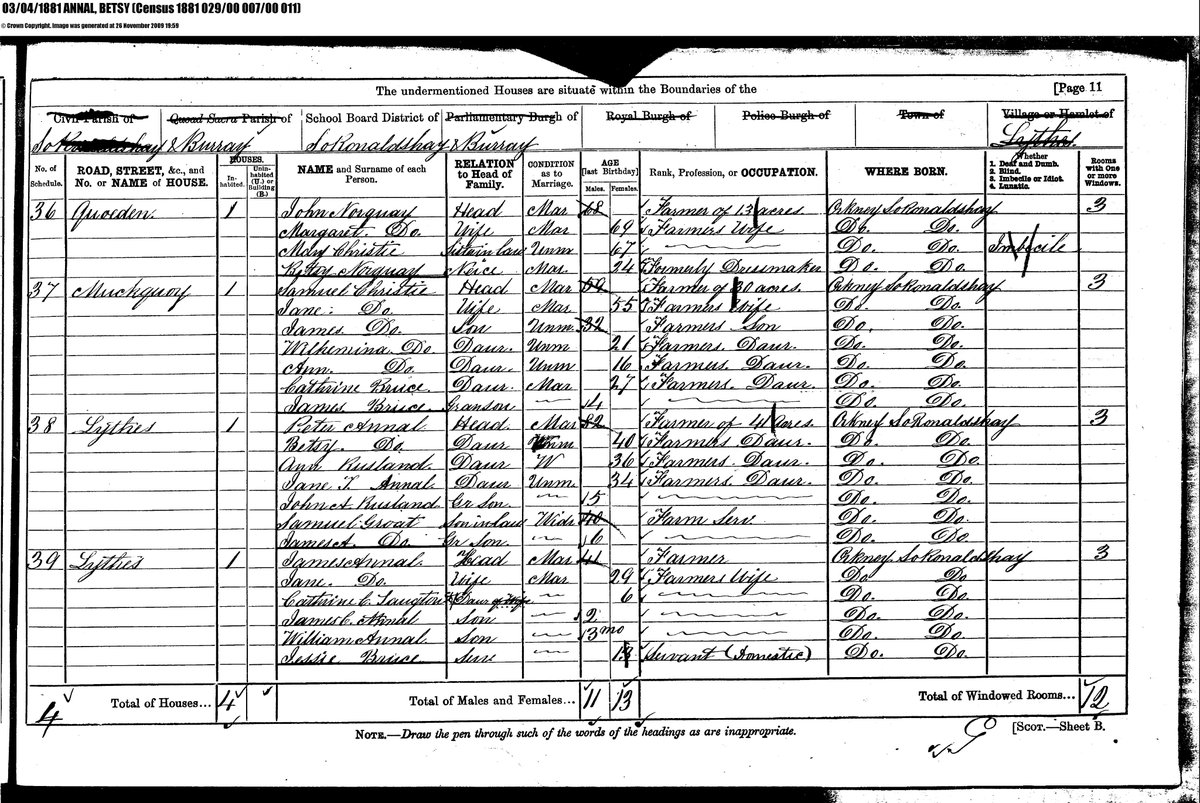 03/04/1881 ANNAL, BETSY (Census 1881 029/00 007/00 011)
© Crown Copyright. Image was generated at 26 November 2009 19:59
The undermentioned Houses are situate within the Boundaries of the [Page 11
Civil Parish of Quoad Sacra Parish of School Board District of Parliamentary Burgh of Royal Burgh of Police Burgh of Town of Village or Hamlet of
& Burray So Ronaldshay & Burray Lythes
No. of Schedule. ROAD, STREET, &c., and No. or NAME of HOUSE. HOUSES. Inhabited. Uninhabited (U.) or Building (B.) NAME and Surname of each Person. RELATION to Head of Family. CONDITION as to Marriage. AGE [last Birthday] Males. Females. Rank, Profession, or OCCUPATION. WHERE BORN. Whether 1. Deaf and Dumb. 2. Blind. 3. Imbecile or Idiot. 4. Lunatic. Rooms with One or more Windows.
36 Quoeden. 1 John Norquay Head Mar 68 Farmer of 13 acres Orkney So Ronaldshay 3
Margaret. Do. Wife Mar 69 Farmers Wife Do. Do.
Mary Christie Sister in law Unm 67 Do. Do. Imbecile
Betsy Norquay Neice Mar. 24 Formerly Dressmaker Do. Do.
37 Muckquoy 1 Samuel Christie Head Mar 50 Farmer of 30 acres Orkney So Ronaldshay 3
Jane. Do. Wife Mar. 55 Farmers Wife Do. Do.
James. Do. Son Unm 32 Farmers Son Do. Do.
Wilhemina. Do. Daur. Unm 21 Farmers. Daur. Do. Do.
Ann. Do. Daur. Unm 16 Farmers. Daur. Do. Do.
Cathrine Bruce Daur. Mar 27 Farmers. Daur. Do. Do.
James Bruce. Granson 4 Do. Do.
38 Lythes 1 Peter Annal Head Mar 82 Farmer of 41 acres. Orkney So Ronaldshay 3
Betsy. Do. Daur Unm 40 Farmers Daur. Do. Do.
Ann Rusland. Daur W 36 Farmers. Daur. Do. Do.
Jane T. Annal Daur Unm. 34 Farmers. Daur. Do. Do.
John A Rusland Gr Son 15 Do. Do.
Samuel Groat Son in law Widr 40 Farm Serv Do. Do.
James A. Do. Gr Son. 6 Do. Do.
39 Lythes 1 James Annal. Head Mar 41 Farmer Orkney So Ronaldshay 3
Jane. Do. Wife Mar 29 Farmers Wife Do. Do
Cathrine C. Langton Daur of Wife 6 Do. Do.
James C. Annal Son 2 Do. Do.
William Annal Son 3 mo Do. Do.
Jessie Bruce Serv Servant (Domestic) Do. Do.
4 Total of Houses... 4 Total of Males and Females... 11 13 Total of Windowed Rooms... 12
NOTE.—Draw the pen through such of the words of the headings as are inappropriate. [SCOT.—Sheet B.